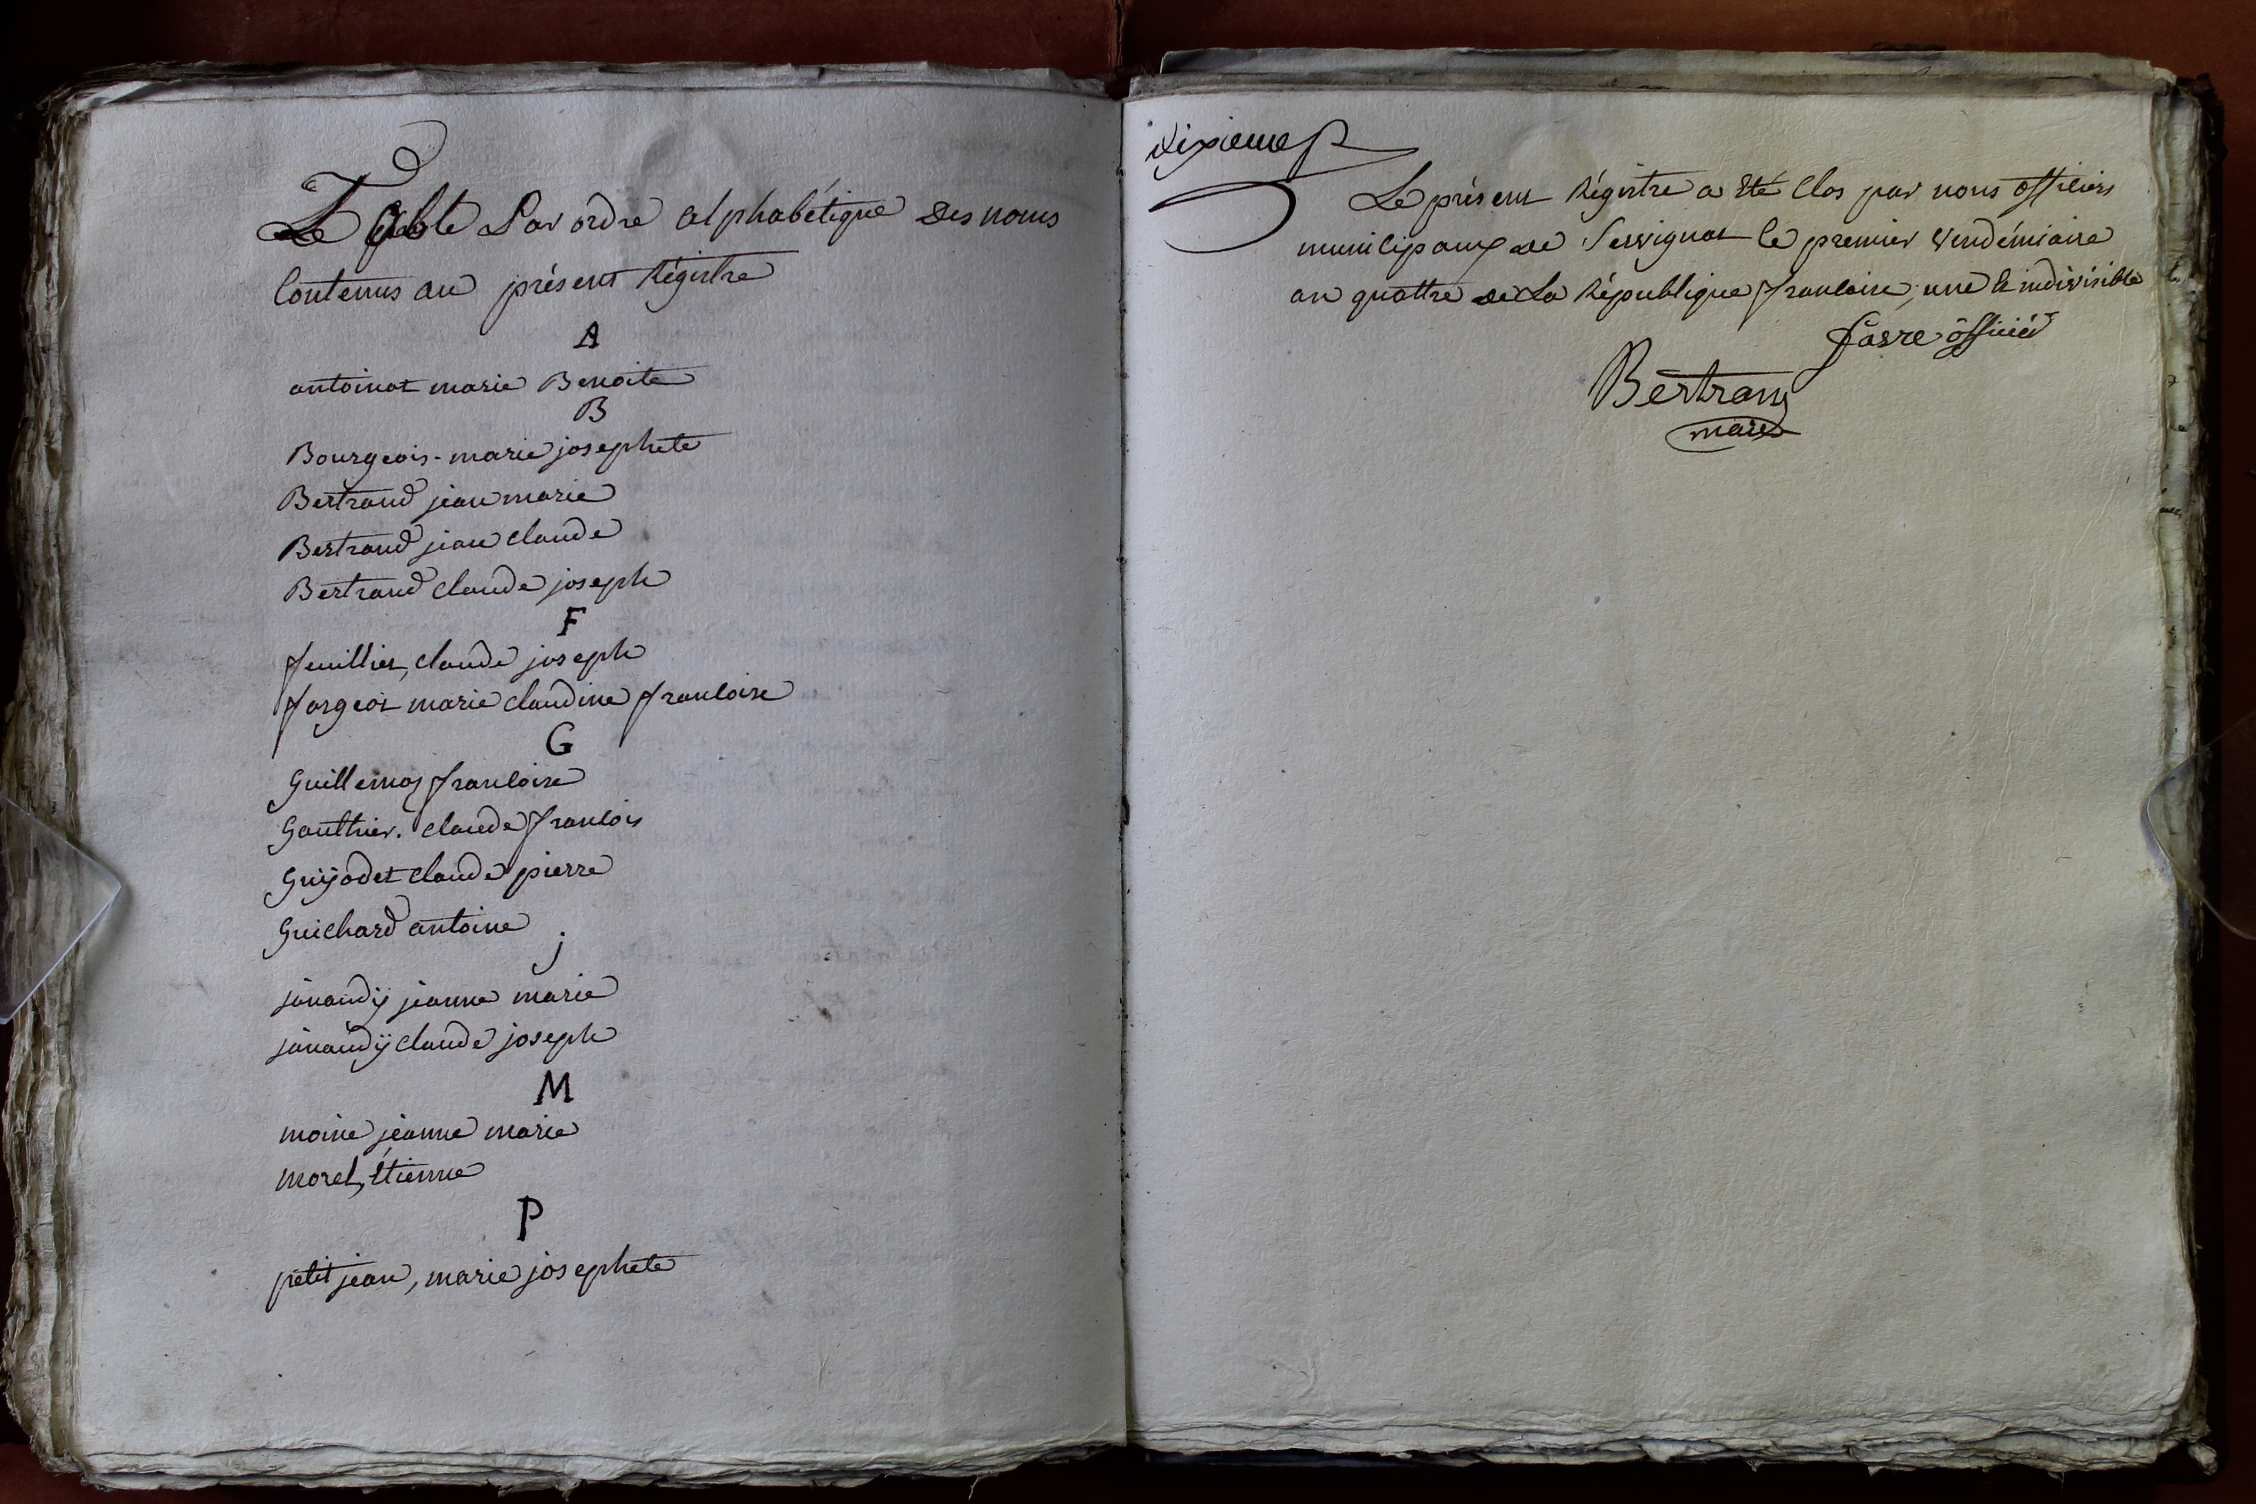 Table Par ordre alphabétique des noms
Contenus au présent Régistre
A
antoinat marie Benoite
B
Bourgeois - marie josephete
Bertrand jean marie
Bertrand jean claude
Bertrand claude joseph
F
feuillier, claude joseph
forgeot marie claudine francoise
G
Guillemoz francoise
Gauthier. claude francois
Guÿodet claude pierre
Guichard antoine
j
janaudÿ jeanne marie
janaudÿ claude joseph
M
moine jeanne marie
morel, étienne
P
petitjean, marie josephete
dixieme
Le présent Régistre a été clos par nous officiers
municipaux de Servignat le premier vendémiaire
an quattre de la République francoise, une & indivisible
favre officié
Bertrand
maire